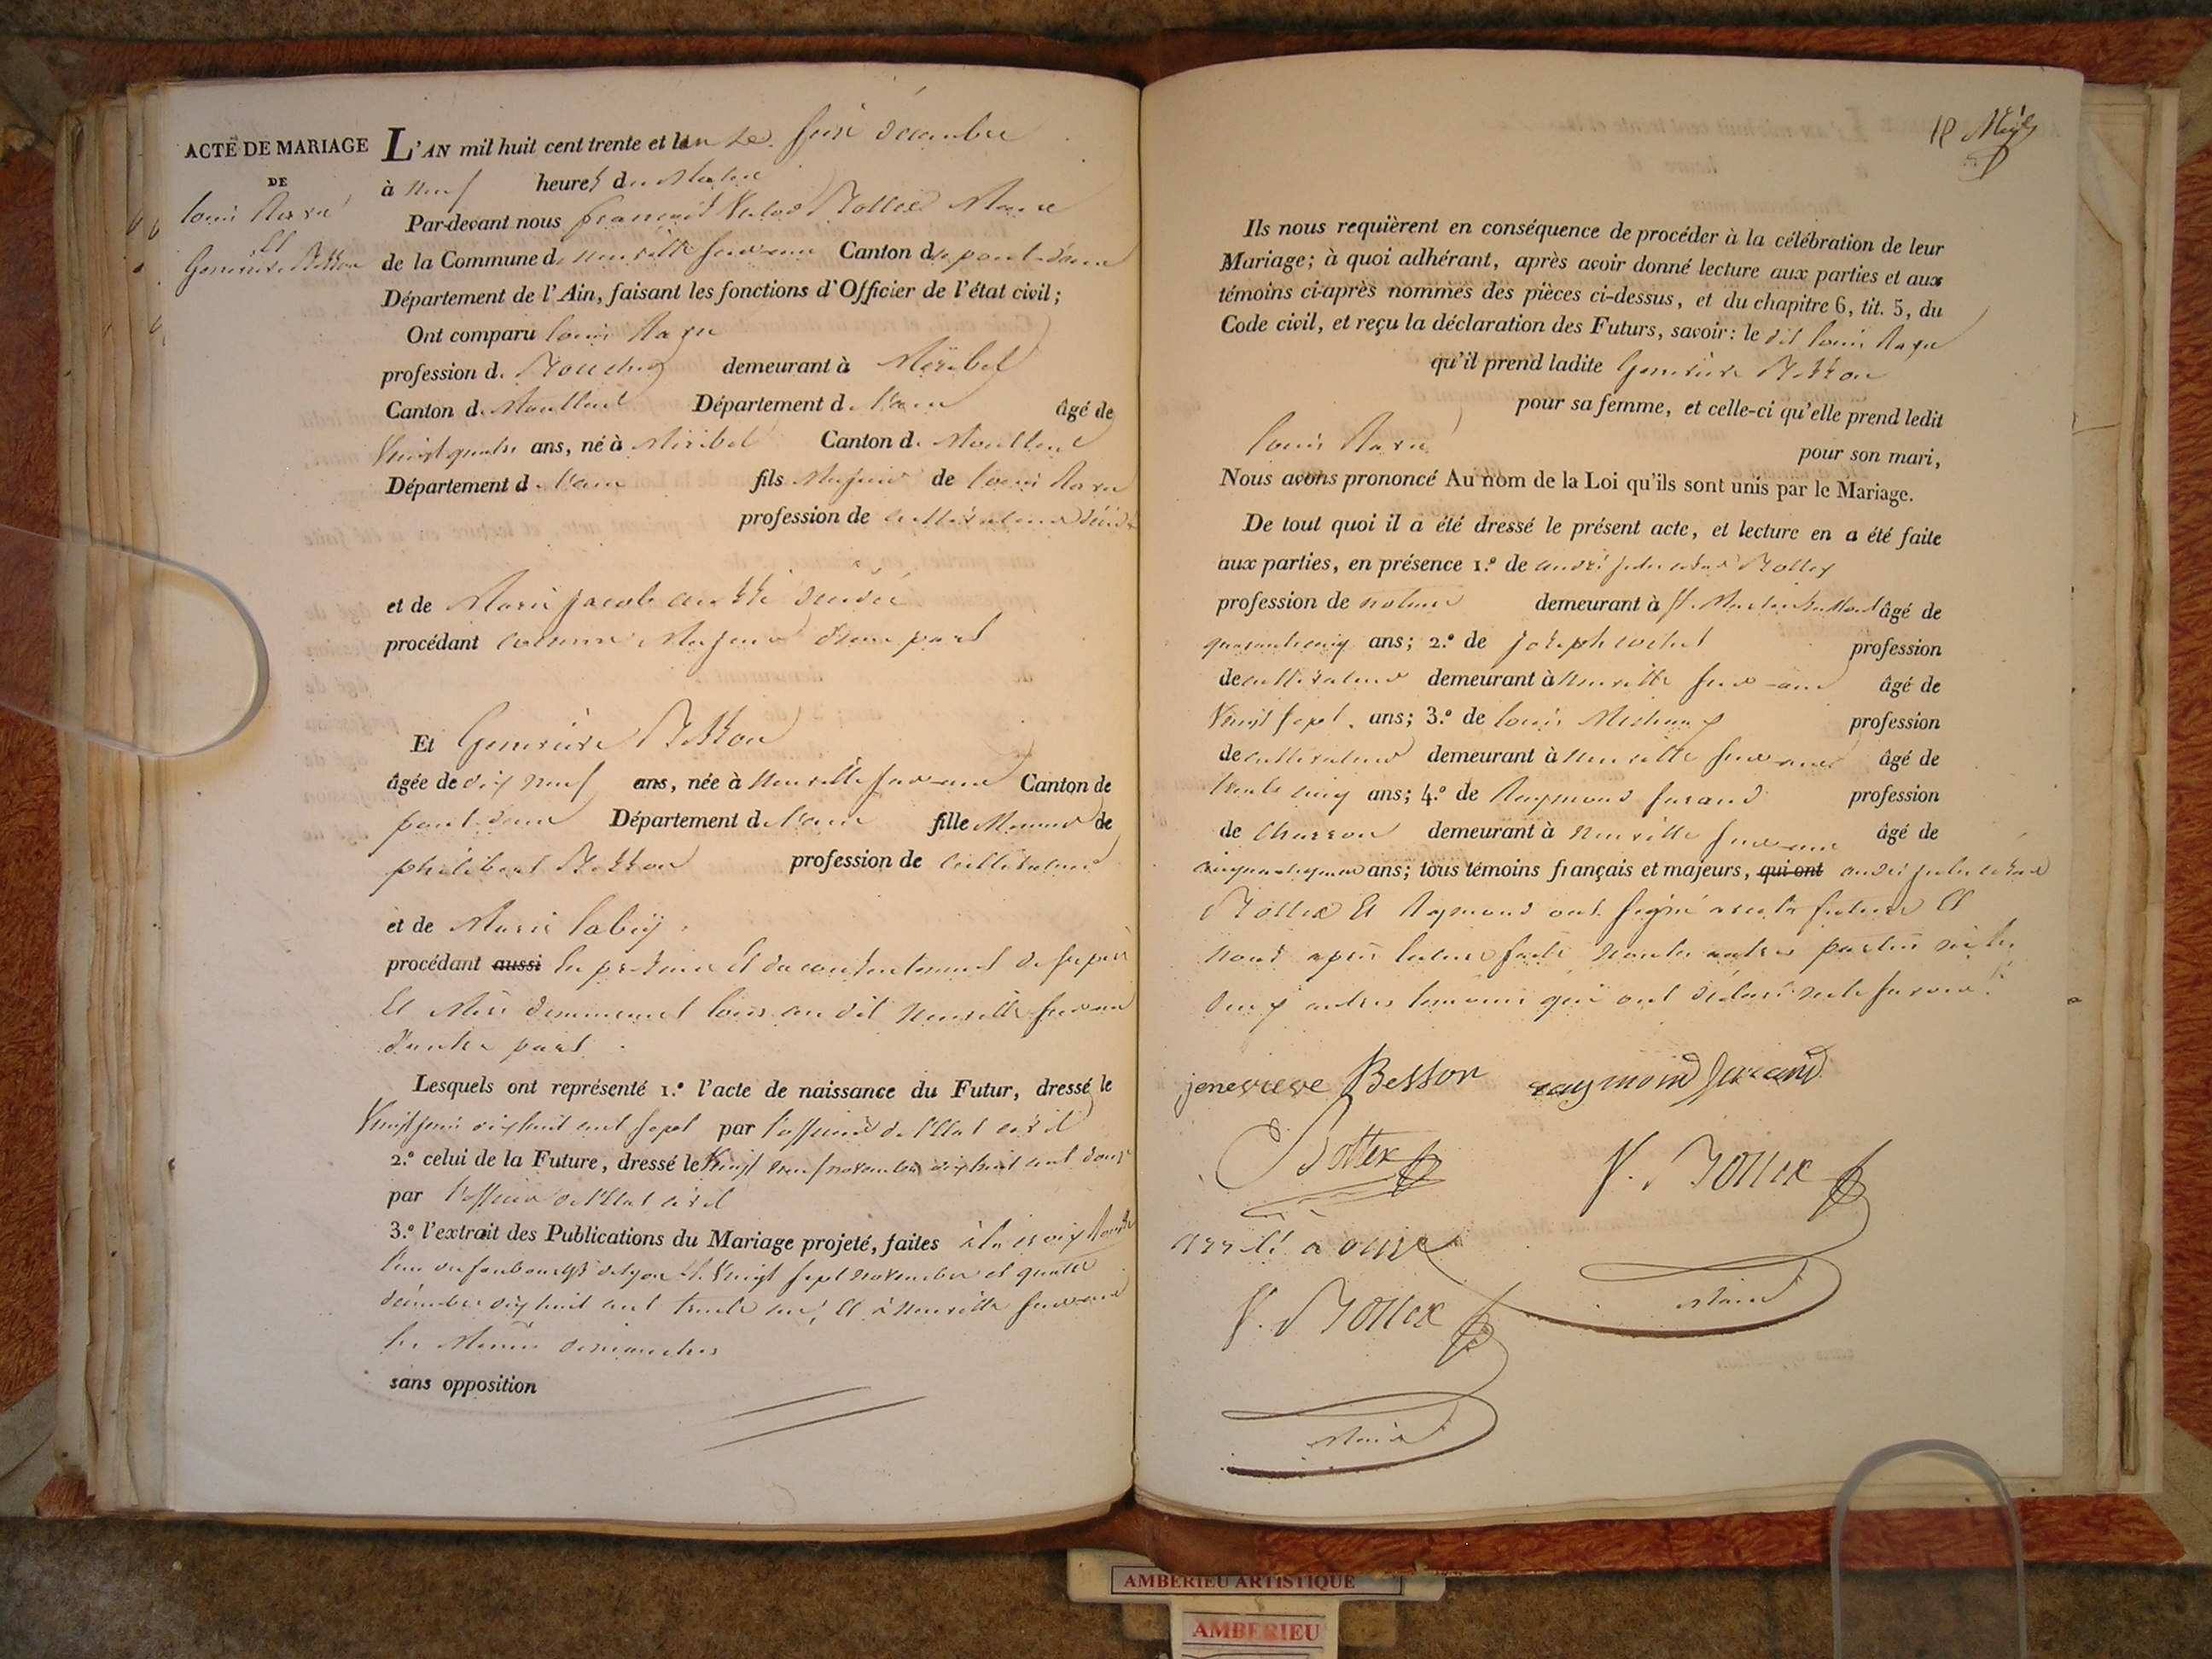 ACTE DE MARIAGE
DE
et
Genevieve Besson
L'AN mil huit cent trente et un le seize décembre
à neuf heures du Matin
Par-devant nous françois Victor Bottex Maire
de la Commune de neuville sur ain Canton de pont d'ain
Département de l'Ain, faisant les fonctions d'Officier de l'état civil;
Ont comparu louis
profession de Boucher demeurant à Miribel
Canton de Montluel Département de l'ain âgé de
Vingt quatre ans, né à Miribel Canton de Montluel
Département de l'ain fils Majeur de louis
profession de cultivateur décédé
et de Marie jacob aussi décédée
procédant comme Majeur d'une part
Et Genevieve Besson
âgée de dix neuf ans, née à neuville sur ain Canton de
pont d'ain Département de l'ain fille Mineure de
philibert Besson profession de Cultivateur
et de Marie
procédant aussi en présence et du consentement de ses père
Et Mère demeurant tous au dit neuville sur ain
d'autre part
Lesquels ont représenté 1.º l'acte de naissance du Futur, dressé le
dix huit cent sept par l'officier de l'Etat civil
2.º celui de la Future, dressé le Vingt neuf novembre dix huit cent douze
par l'officier de l'Etat civil
3.º l'extrait des Publications du Mariage projeté, faites à la croix Rousse
l'un des faubourgs de lyon le Vingt sept novembre et quatre
décembre dix huit cent trente un, Et à neuville sur ain
les Mêmes dimanches
sans opposition
Ils nous requièrent en conséquence de procéder à la célébration de leur
Mariage; à quoi adhérant, après avoir donné lecture aux parties et aux
témoins ci-après nommés des pièces ci-dessus, et du chapitre 6, tit. 5, du
Code civil, et reçu la déclaration des Futurs, savoir: le dit louis
qu'il prend ladite Genevieve Besson
pour sa femme, et celle-ci qu'elle prend ledit
louis
pour son mari,
Nous avons prononcé Au nom de la Loi qu'ils sont unis par le Mariage.
De tout quoi il a été dressé le présent acte, et lecture en a été faite
aux parties, en présence 1.º de andré jules césar Bottex
profession de notaire demeurant à St. Martin du Mont âgé de
quarante cinq ans; 2.º de joseph profession
de cultivateur demeurant à neuville sur ain âgé de
Vingt sept ans; 3.º de louis profession
de cultivateur demeurant à neuville sur ain âgé de
trente cinq ans; 4.º de Raymond profession
de Charron demeurant à neuville sur ain âgé de
ans; tous témoins français et majeurs, qui ont andré jules césar
Bottex Et Raymond ont signé avec la future Et
nous après lecture faite non les autres parties ni les
deux autres témoins qui ont déclaré ne le savoir
jenevieve Besson
raymond
Bottex
V. Bottex
Maire
arrêté à onze
V. Bottex
Maire
AMBERIEU ARTISTIQUE
AMBERIEU